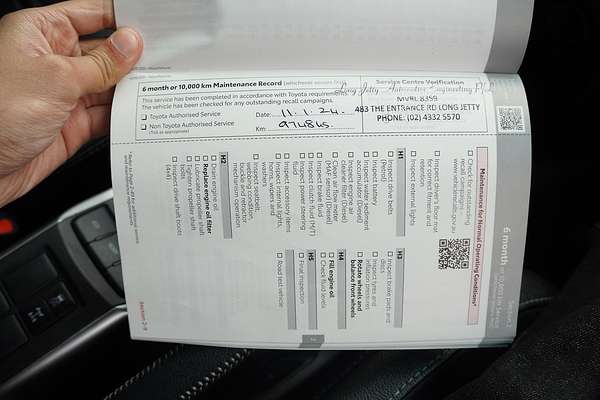 6 month or 10,000 km Maintenance Record (whichever occurs first)
This service has been completed in accordance with Toyota requirements.
The vehicle has been checked for any outstanding recall campaigns.
Toyota Authorised Service
Non Toyota Authorised Service
(Tick as appropriate)
Date: 11.1.24.
Km:
Service Centre Verification
Long Jetty Automotive Engineering P/L
MVRL 8359
483 THE ENTRANCE RD LONG JETTY
PHONE: (02) 4332 5570
6 month or 10,000 km Service
Maintenance for Normal Operating Conditions*
Check for outstanding
recall campaigns
www.vehiclerecalls.gov.au
Inspect driver's floor mat
for correct fitment and
retention
Inspect external lights
H1
Inspect drive belts
(Petrol)
Inspect battery
Inspect water sediment
accumulator (Diesel)
Inspect engine air
cleaner filter (Diesel)
Clean air flow meter
(MAF) sensor (Diesel)
Inspect brake fluid
Inspect clutch fluid (M/T)
Inspect power steering
fluid
Inspect accessory items
Inspect internal lights,
horns, wipers and
washers
Inspect seatbelt,
webbing condition,
buckle and retractor
mechanism operation
H2
Drain engine oil
Replace engine oil filter
Lubricate propeller shaft
Tighten propeller shaft
bolts
Inspect drive shaft boots
(4x4)
H3
Inspect brake pads and
discs
Inspect tyres and
inflation pressures
Rotate wheels and
balance front wheels
H4
Fill engine oil
Check fluid levels
H5
Final inspection
Road test vehicle
Section 2-9